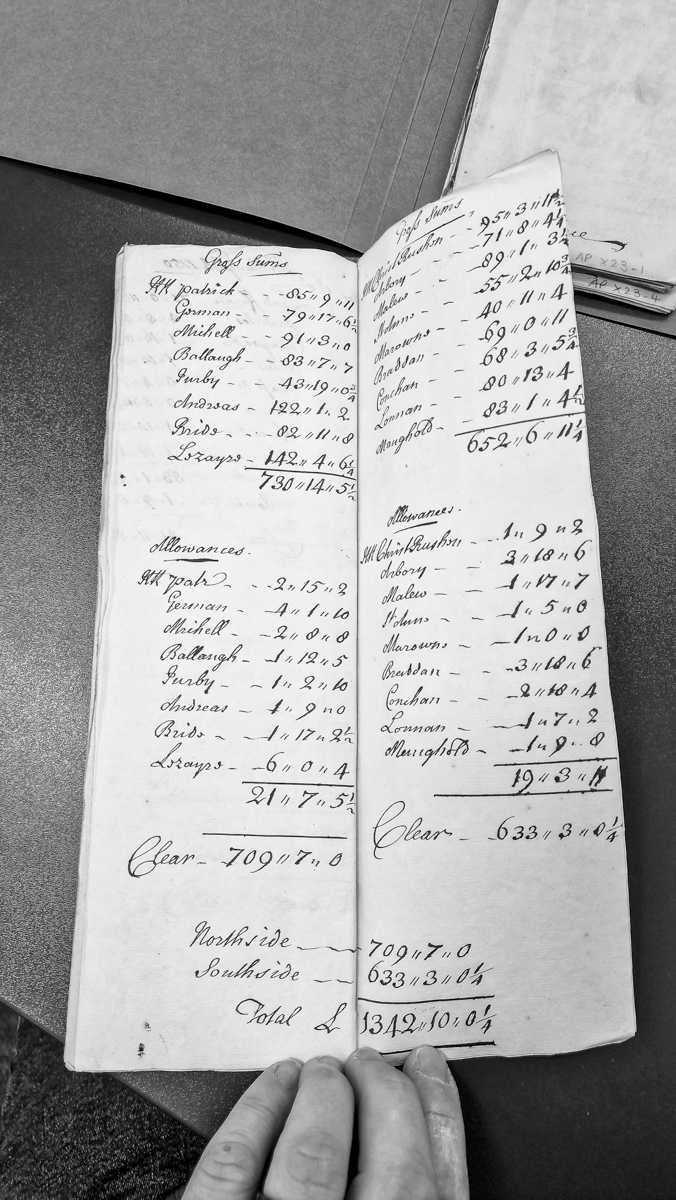 Gross Sums
KK patrick - 85 " 9 " 11
German - - 79 " 17 " 6½
Michell - 91 " 3 " 0
Ballaugh - - 83 " 7 " 7
Jurby - - 43 " 19 " 0¾
Andreas - 122 " 1 " 2
Bride - - 82 " 11 " 8
Lezayre - 142 " 4 " 6¼
730 " 14 " 5½
Allowances.
KK patr - - 2 " 15 " 2
German - - 4 " 1 " 10
Michell - - 2 " 8 " 8
Ballaugh - 1 " 12 " 5
Jurby - - 1 " 2 " 10
Andreas - 1 " 9 " 0
Bride - - 1 " 17 " 2½
Lezayre - 6 " 0 " 4
21 " 7 " 5½
Clear - 709 " 7 " 0
Gross Sums
KK Christ Rushen - - 95 " 3 " 11½
Arbory - - 71 " 8 " 4¼
Malew - - 89 " 1 " 3½
St Anns - - 55 " 2 " 10¾
Marowne - - 40 " 11 " 4
Braddan - - 69 " 0 " 11
Conchan - - 68 " 3 " 5¾
Lonnan - - 80 " 13 " 4
Maughold - - 83 " 1 " 4½
652 " 6 " 11¼
Allowances.
KK Christ Rushen - - 1 " 9 " 2
Arbory - - 3 " 18 " 6
Malew - - 1 " 17 " 7
St Anns - - 1 " 5 " 0
Marowne - - 1 " 0 " 0
Braddan - - 3 " 18 " 6
Conchan - - 2 " 18 " 4
Lonnan - 1 " 7 " 2
Maughold - 1 " 9 " 8
19 " 3 " 11
Clear - 633 " 3 " 0¼
Northside - 709 " 7 " 0
Southside - - 633 " 3 " 0¼
Total £ 1342 " 10 " 0¼
AP X23-1
AP X23-4